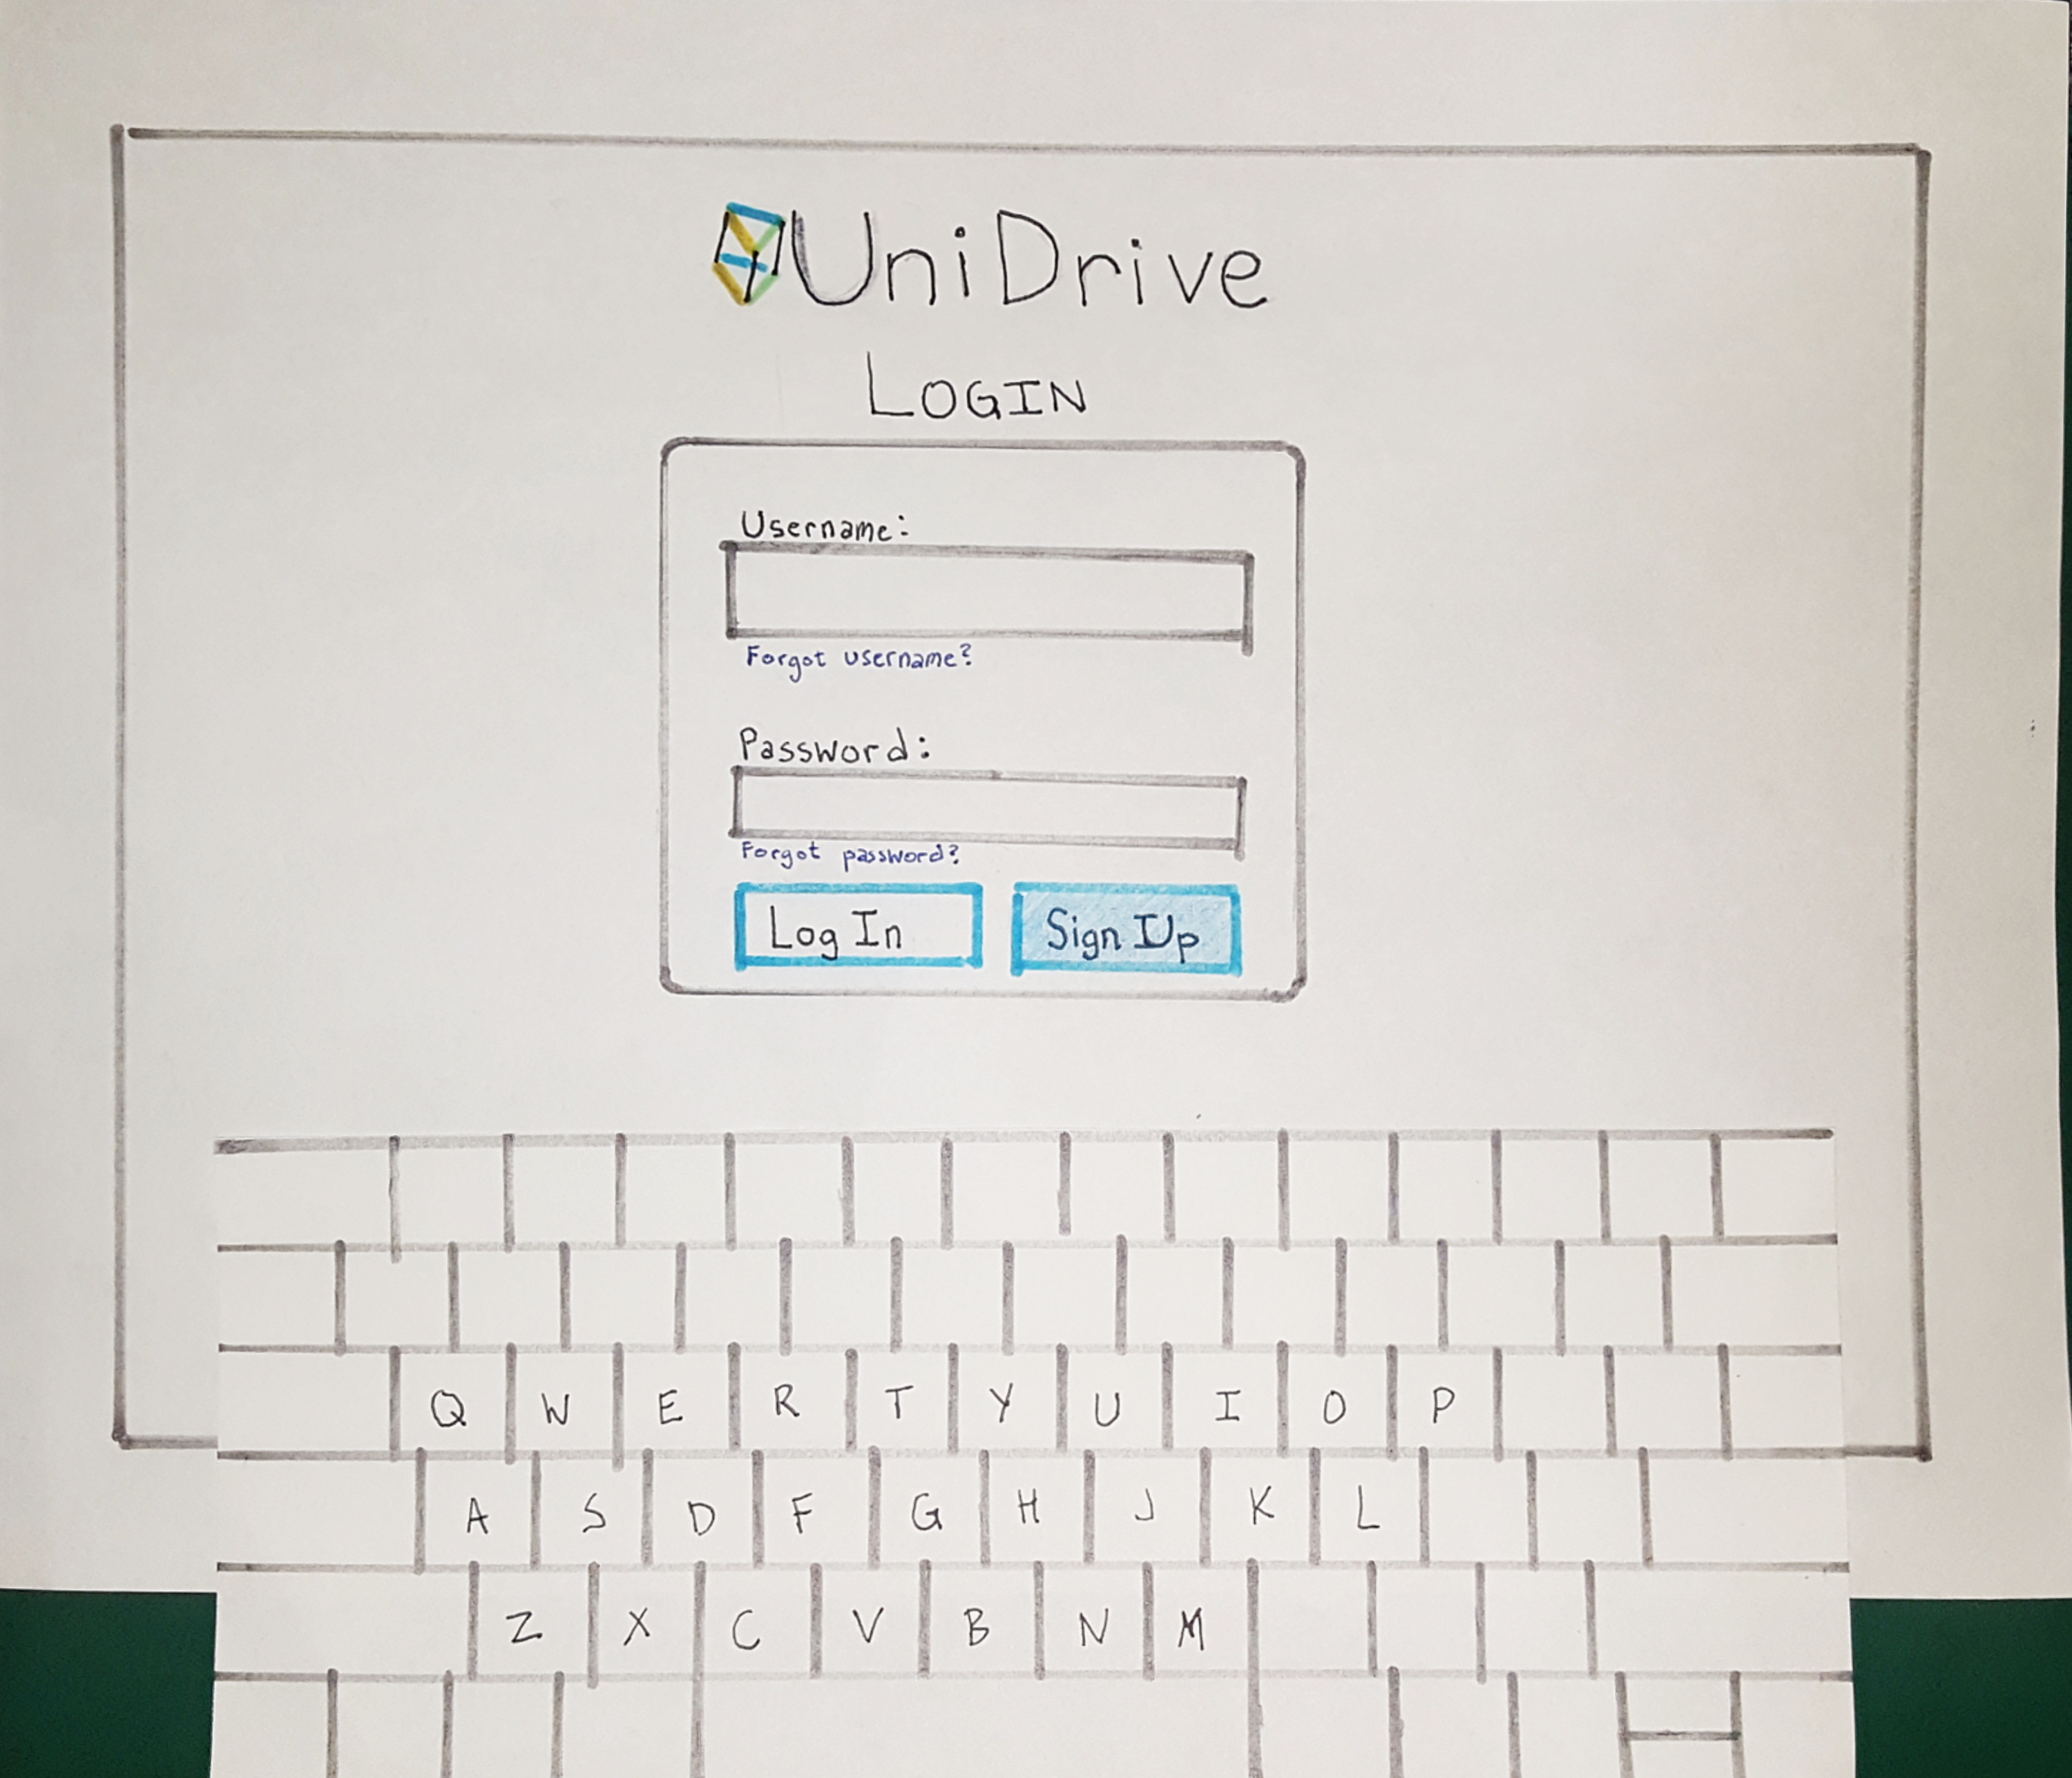 UniDrive
LOGIN
Username:
Forgot username?
Password:
Forgot password?
Log In Sign Up
Q W E R T Y U I O P
A S D F G H J K L
Z X C V B N M